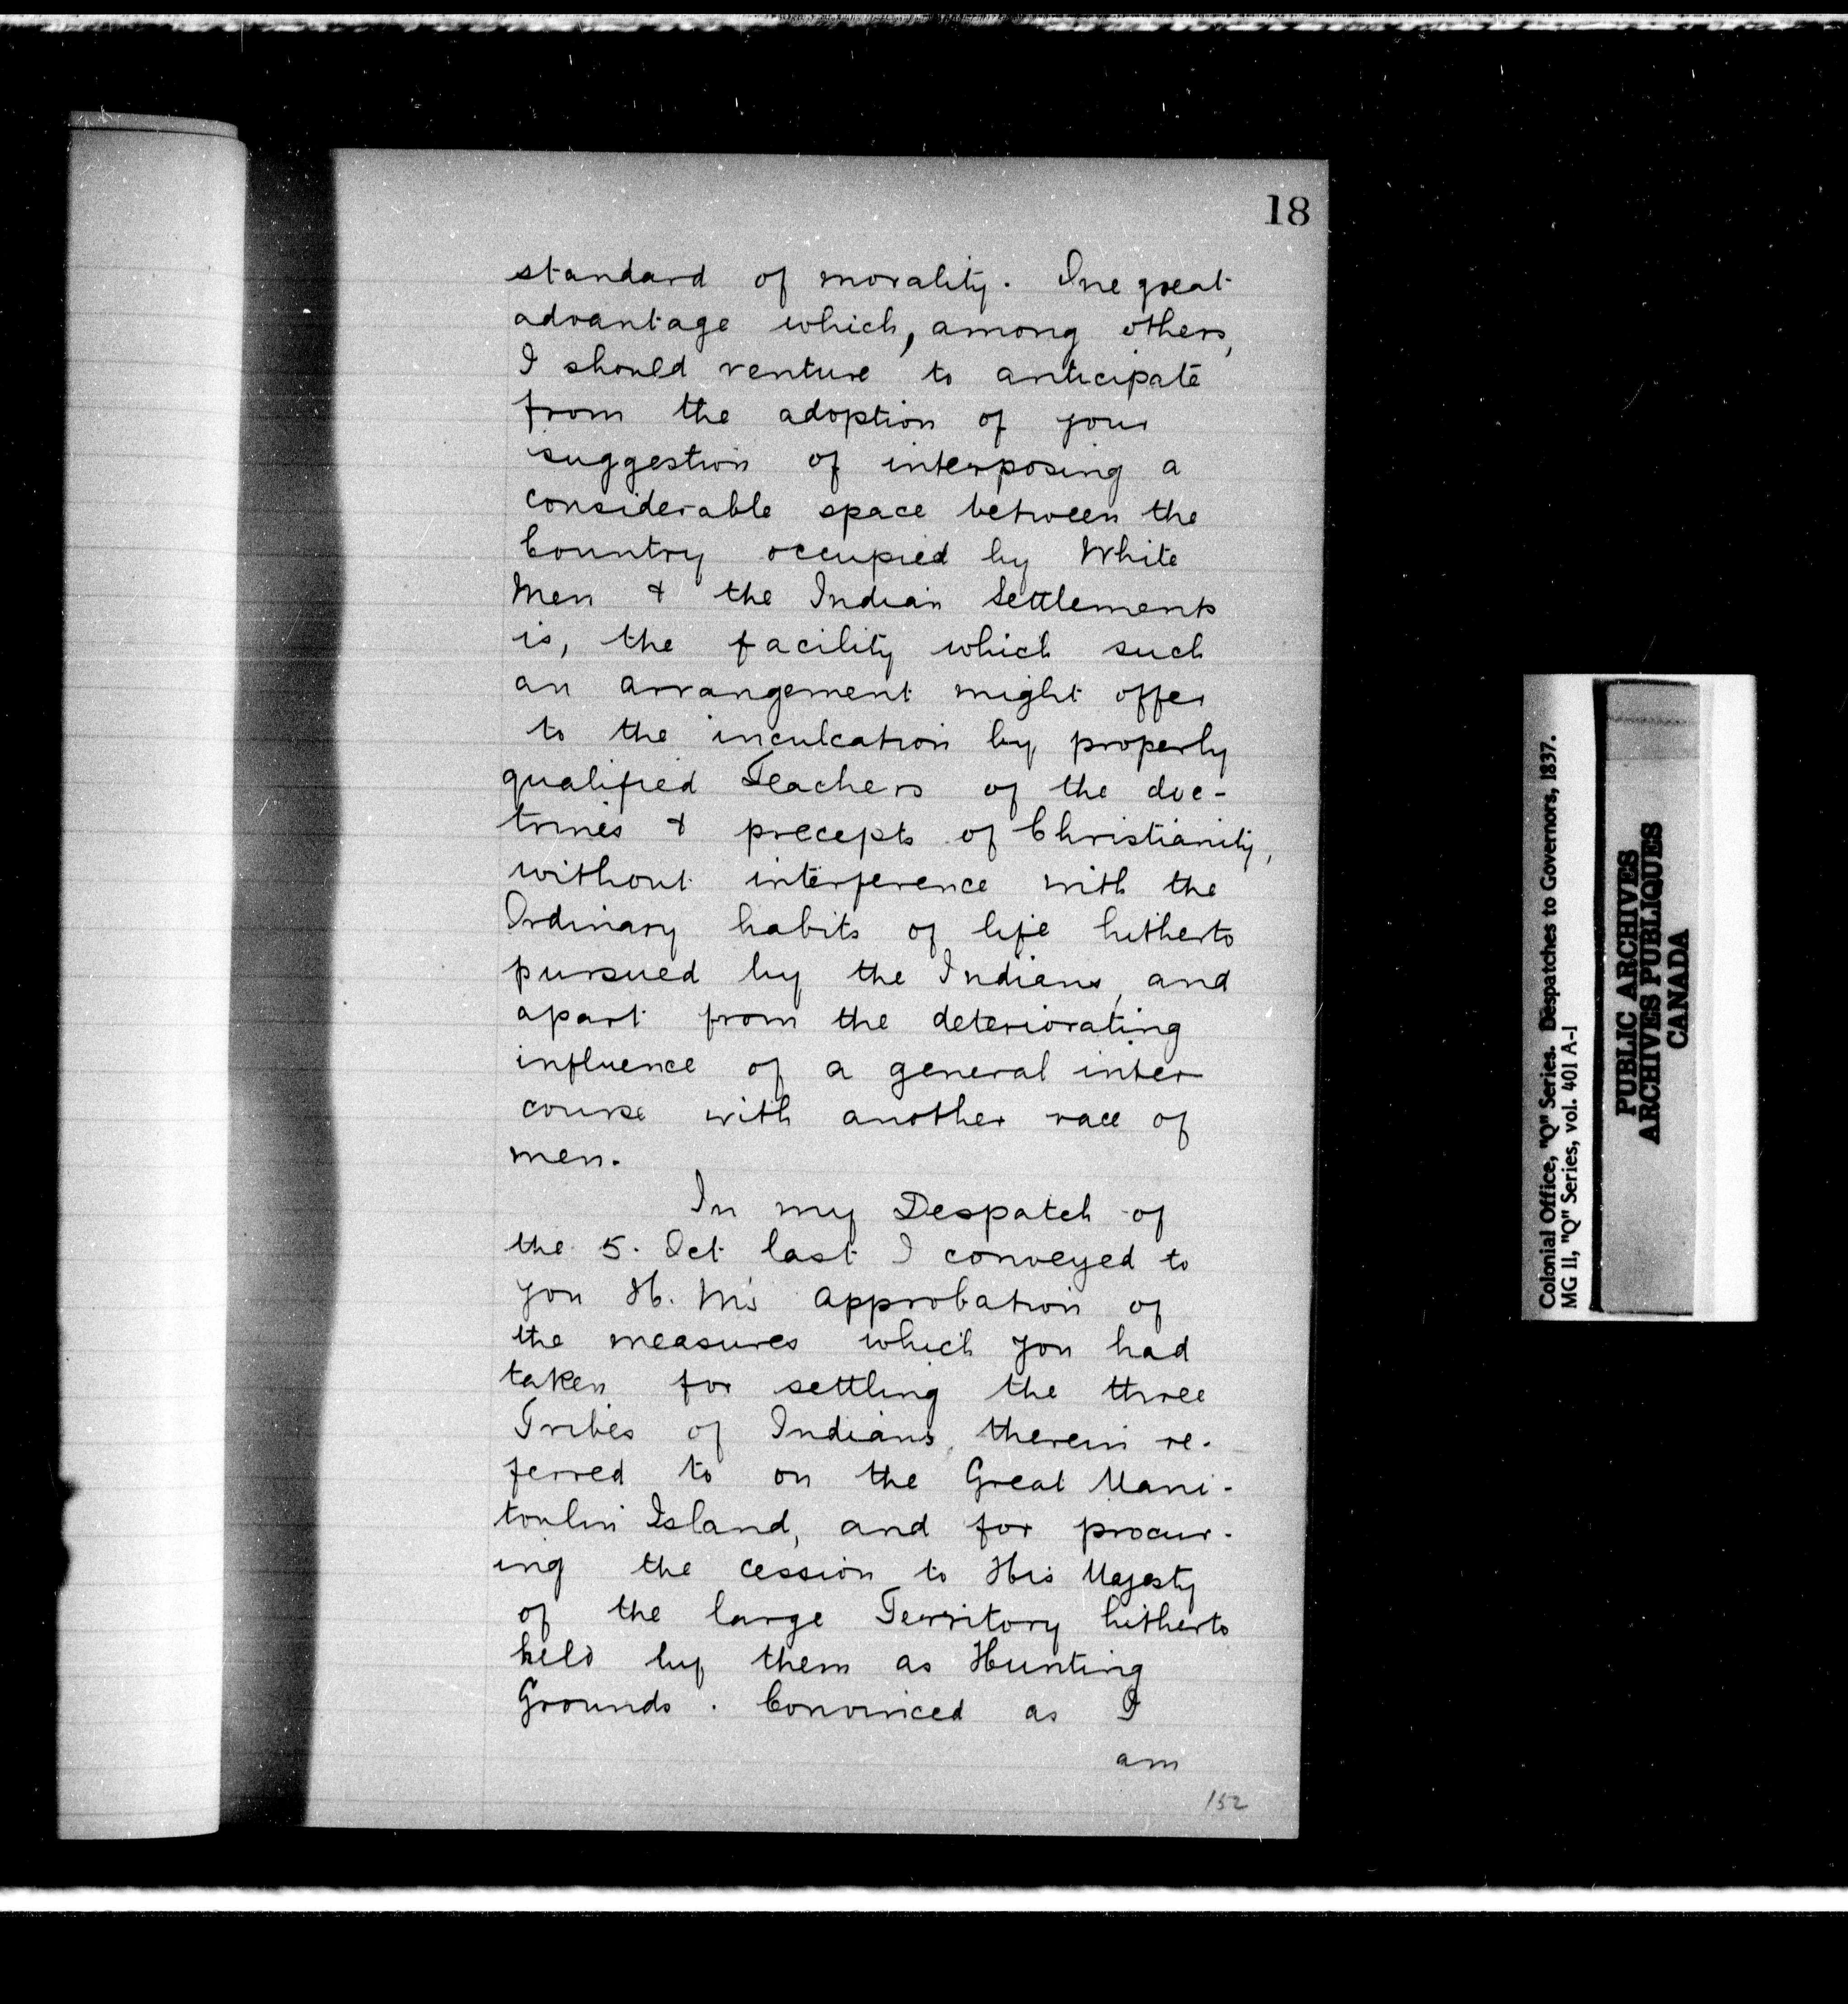 18
standard of morality. One great
advantage which, among others,
I should venture to anticipate
from the adoption of your
suggestion of interposing a
considerable space between the
Country occupied by White
Men & the Indian Settlements
is, the facility which such
an arrangement might offer
to the inculcation by properly
qualified Teachers of the doc-
trines & precepts of Christianity,
without interference with the
Ordinary habits of life hitherto
pursued by the Indians, and
apart from the deteriorating
influence of a general inter
course with another race of
men.
In my Despatch of
the 5. Oct last I conveyed to
you H. M's approbation of
the measures which you had
taken for settling the three
Tribes of Indians, therein re-
ferred to on the Great Mani-
toulin Island, and for procur-
ing the cession to His Majesty
of the large Territory hitherto
held by them as Hunting
Grounds. Convinced as I
am
152
Colonial Office, "Q" Series. Despatches to Governors, 1837.
MG 11, "Q" Series, vol. 401 A-1
PUBLIC ARCHIVES
ARCHIVES PUBLIQUES
CANADA